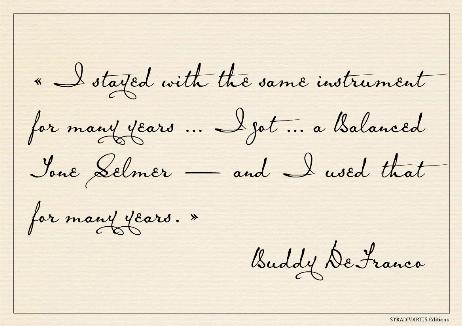 « I stayed with the same instrument
for many years ... I got ... a Balanced
Tone Selmer — and I used that
for many years. »
Buddy DeFranco
STRADIVARIUS Editions